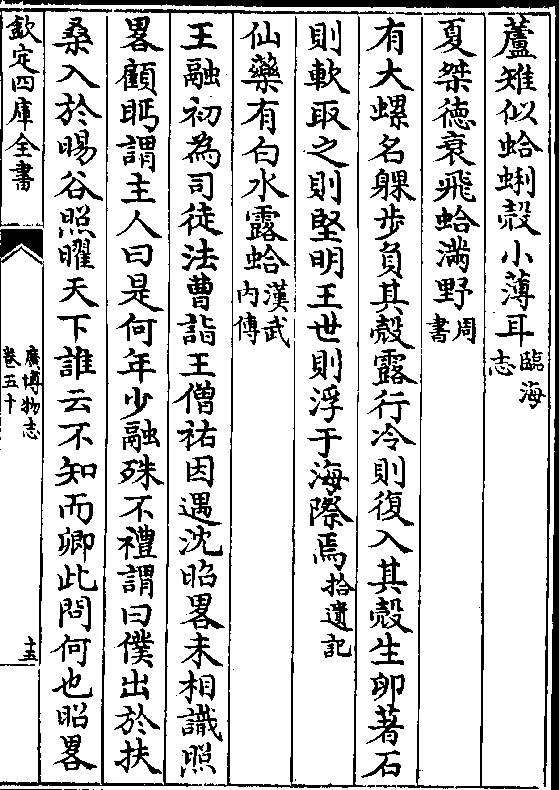 蘆雉似蛤蜊殻小薄耳臨海志
夏桀德衰飛蛤满野周書
有大螺名躶步負其殻露行冷則復入其殻生卵著石
則軟取之則堅明王世則浮于海際焉拾遺記
仙藥有白水露蛤漢武内傳
王融初為司徒法曹詣王僧祐因遇沈昭畧未相識照
畧顧眄謂主人曰是何年少融殊不禮謂曰僕出於扶
桑入於暘谷照曜天下誰云不知而卿此問何也昭畧
欽定四庫全書
廣博物志
卷五十
十五